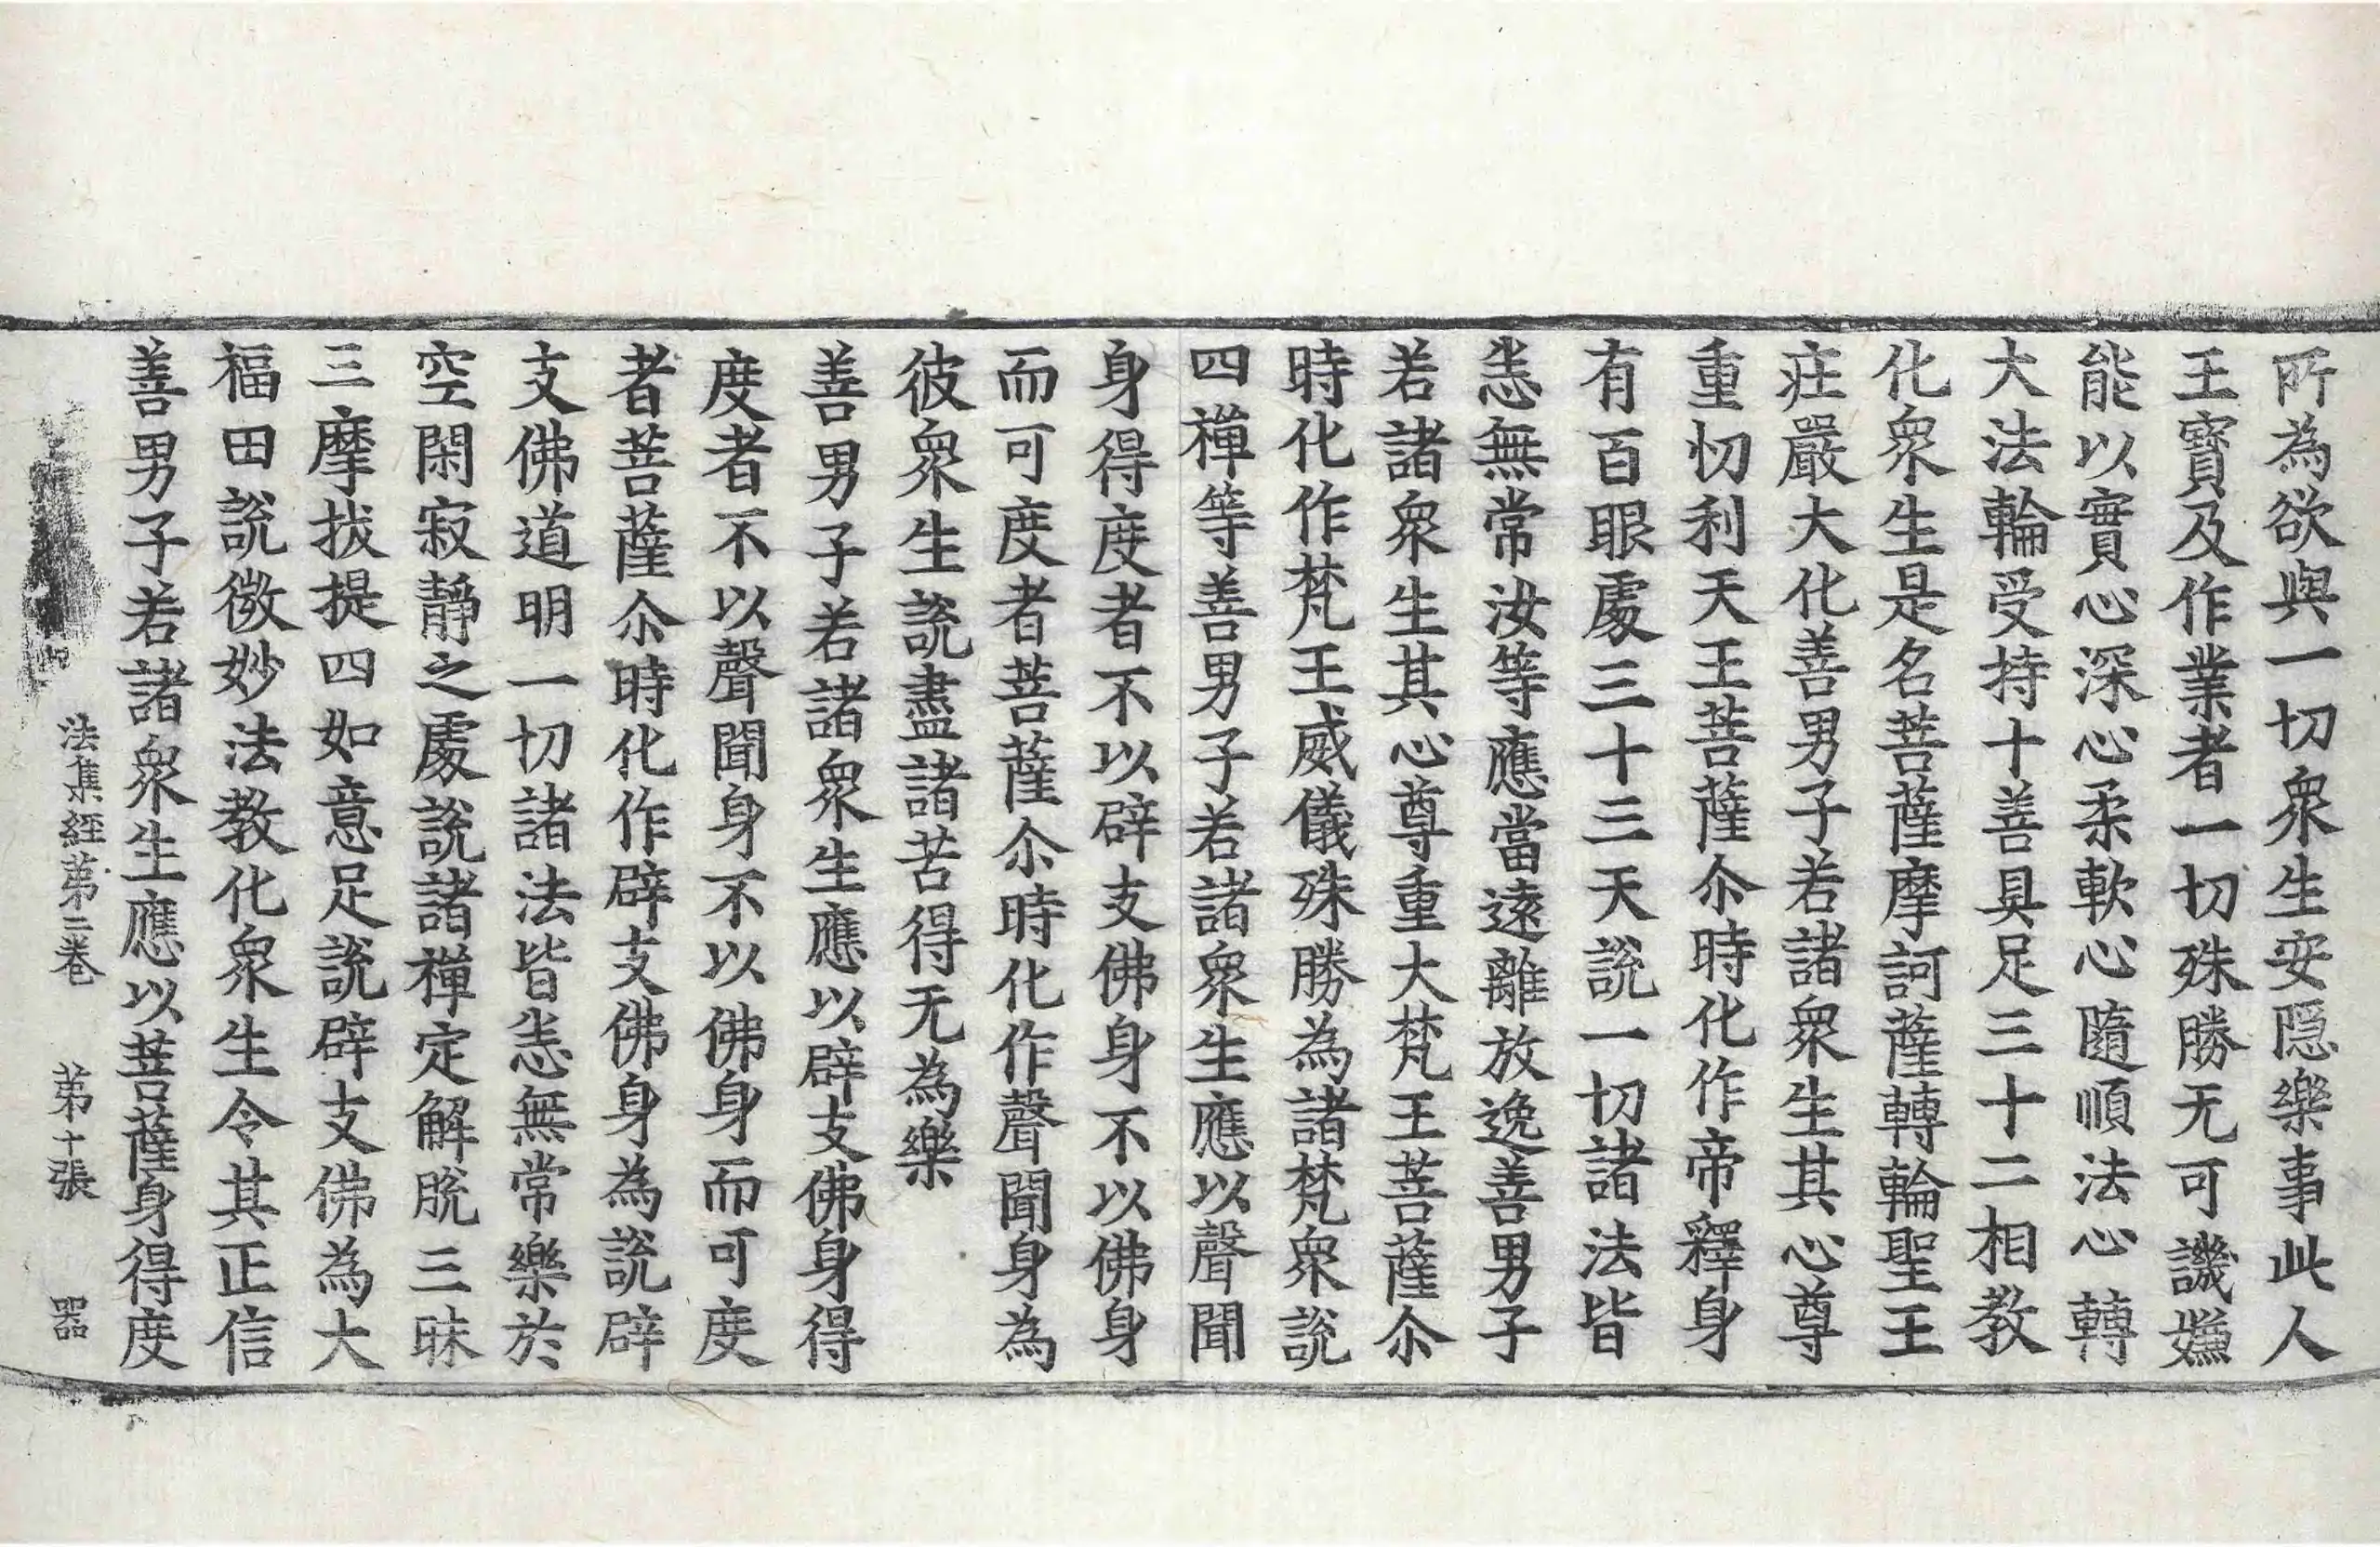 所為欲與一切衆生安隱樂事此人
王寶及作業者一切殊勝无可譏嫌
能以實心深心柔軟心隨順法心轉
大法輪受持十善具足三十二相教
化衆生是名菩薩摩訶薩轉輪聖王
莊嚴大化善男子若諸衆生其心尊
重忉利天王菩薩尒時化作帝釋身
有百眼處三十三天說一切諸法皆
悉無常汝等應當遠離放逸善男子
若諸衆生其心尊重大梵王菩薩尒
時化作梵王威儀殊勝為諸梵衆說
四禪等善男子若諸衆生應以聲聞
身得度者不以辟支佛身不以佛身
而可度者菩薩尒時化作聲聞身為
彼衆生說盡諸苦得无為樂
善男子若諸衆生應以辟支佛身得
度者不以聲聞身不以佛身而可度
者菩薩尒時化作辟支佛身為說辟
支佛道明一切諸法皆悉無常樂於
空閑寂靜之處說諸禪定解脫三昧
三摩拔提四如意足說辟支佛為大
福田說微妙法教化衆生令其正信
善男子若諸衆生應以菩薩身得度
法集經第二卷 第十張 器